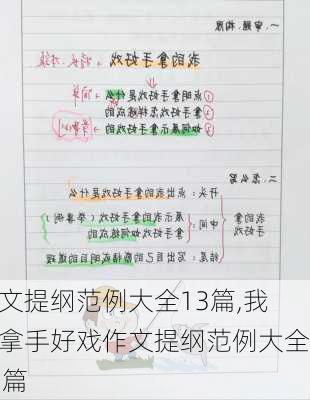 一、审题、构思
我的拿手好戏
①点明拿手好戏是什么
②拿手好戏怎样练成的
③如何展示拿手好戏的
二、怎么写
开头：点出我的拿手好戏是什么
我的拿手好戏
中间：展示我的拿手好戏（举事例）
如何练成的
结尾：写出自己的感悟或明白的道理
文提纲范例大全13篇,我
拿手好戏作文提纲范例大全
篇